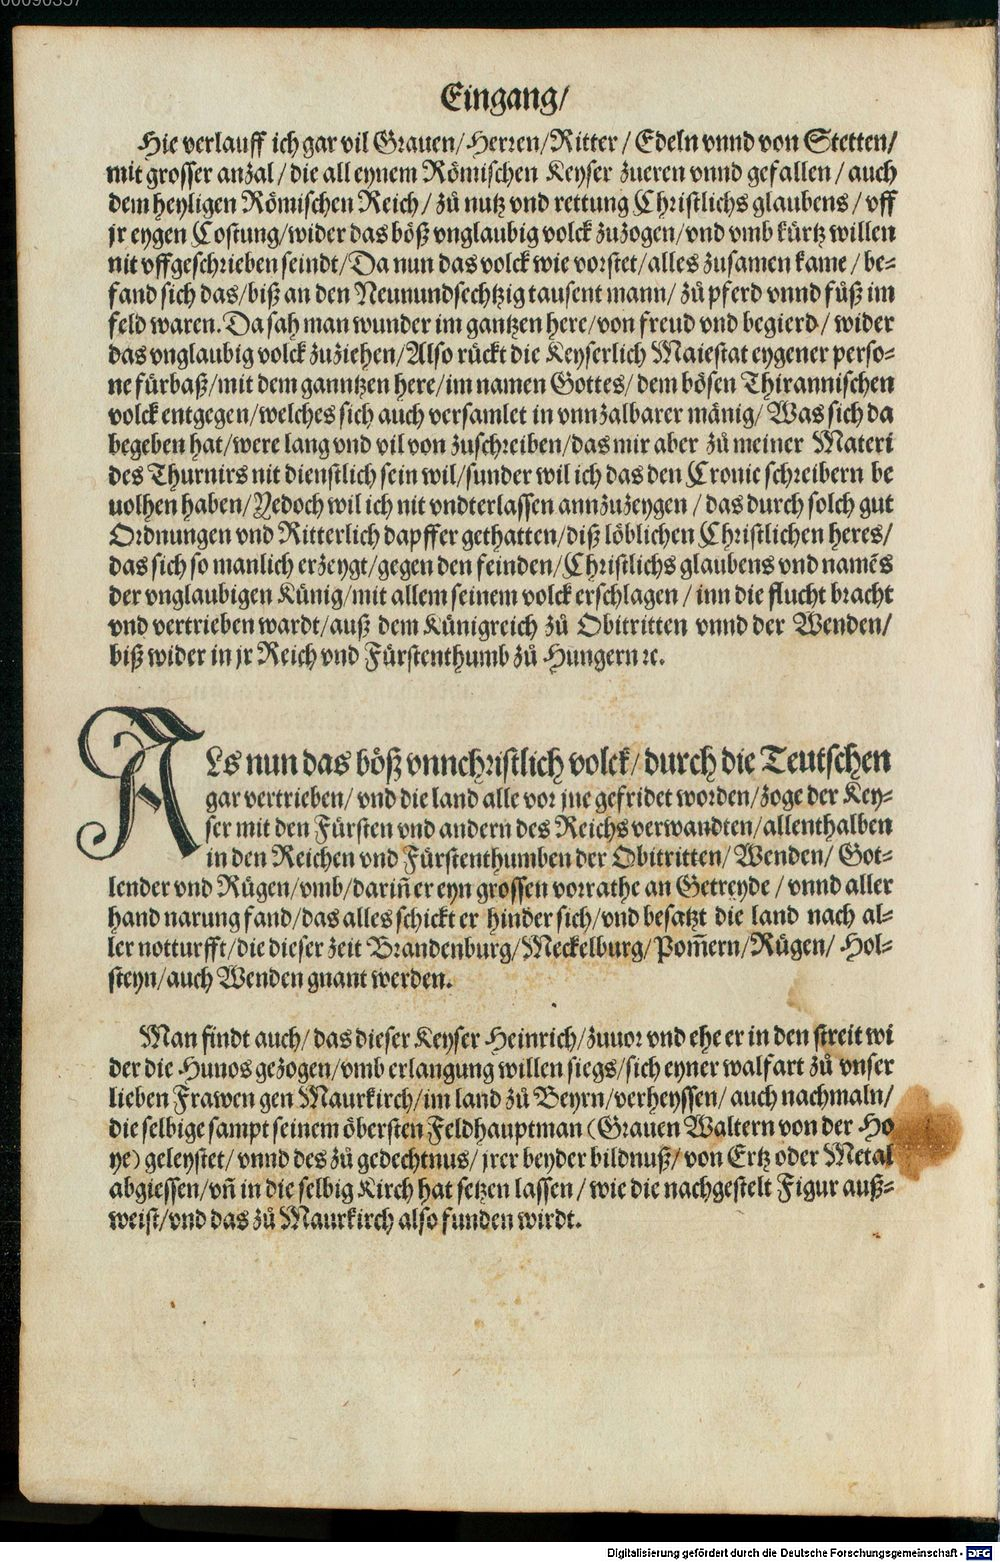 00090357
Eingang/
Hie verlauff ich gar vil Grauen/Herren/Ritter/Edeln vnnd von Stetten/
mit grosser anzal/die all eynem Römischen Keyser zueren vnnd gefallen/auch
dem heyligen Römischen Reich/zů nutz vnd rettung Christlichs glaubens/vff
jr eygen Costung/wider das böß vnglaubig volck zuzogen/vnd vmb kürtz willen
nit vffgeschrieben seindt/Da nun das volck wie vorstet/alles zusamen kame/be-
fand sich das/biß an den Neunundsechtzig tausent mann/zů pferd vnnd fůß im
feld waren. Da sah man wunder im gantzen here/von freud vnd begierd/wider
das vnglaubig volck zuziehen/Also rückt die Keyserlich Maiestat eygener perso-
ne fürbaß/mit dem ganntzen here/im namen Gottes/dem bösen Thirannischen
volck entgegen/welches sich auch versamlet in vnnzalbarer mänig/Was sich da
begeben hat/were lang vnd vil von zuschreiben/das mir aber zů meiner Materi
des Thurnirs nit dienstlich sein wil/sunder wil ich das den Cronic schreibern be
uolhen haben/Yedoch wil ich nit vndterlassen annzuzeygen/das durch solch gut
Ordnungen vnd Ritterlich dapffer gethatten/diß löblichen Christlichen heres/
das sich so manlich erzeygt/gegen den feinden/Christlichs glaubens vnd namēs
der vnglaubigen Künig/mit allem seinem volck erschlagen/inn die flucht bracht
vnd vertrieben wardt/auß dem Künigreich zů Obitritten vnnd der Wenden/
biß wider in jr Reich vnd Fürstenthumb zů Hungern ꝛc.
ALs nun das böß vnnchristlich volck/durch die Teutschen
gar vertrieben/vnd die land alle vor jne gefridet worden/zoge der Key-
ser mit den Fürsten vnd andern des Reichs verwandten/allenthalben
in den Reichen vnd Fürstenthumben der Obitritten/Wenden/Got-
lender vnd Rügen/vmb/dariñ er eyn grossen vorrathe an Getreyde/vnnd aller
hand narung fand/das alles schickt er hinder sich/vnd besatzt die land nach al-
ler notturfft/die dieser zeit Brandenburg/Meckelburg/Pom̃ern/Rügen/Hol-
steyn/auch Wenden gnant werden.
Man findt auch/das dieser Keyser Heinrich/zuuor vnd ehe er in den streit wi
der die Hunos gezogen/vmb erlangung willen siegs/sich eyner walfart zů vnser
lieben Frawen gen Maurkirch/im land zů Beyrn/verheyssen/auch nachmaln/
die selbige sampt seinem öbersten Feldhauptman (Grauen Waltern von der Ho
ye) geleystet/vnnd des zů gedechtnus/jrer beyder bildnuß/von Ertz oder Metal
abgiessen/vñ in die selbig Kirch hat setzen lassen/wie die nachgestelt Figur auß-
weist/vnd das zů Maurkirch also funden wirdt.
Digitalisierung gefördert durch die Deutsche Forschungsgemeinschaft - DFG